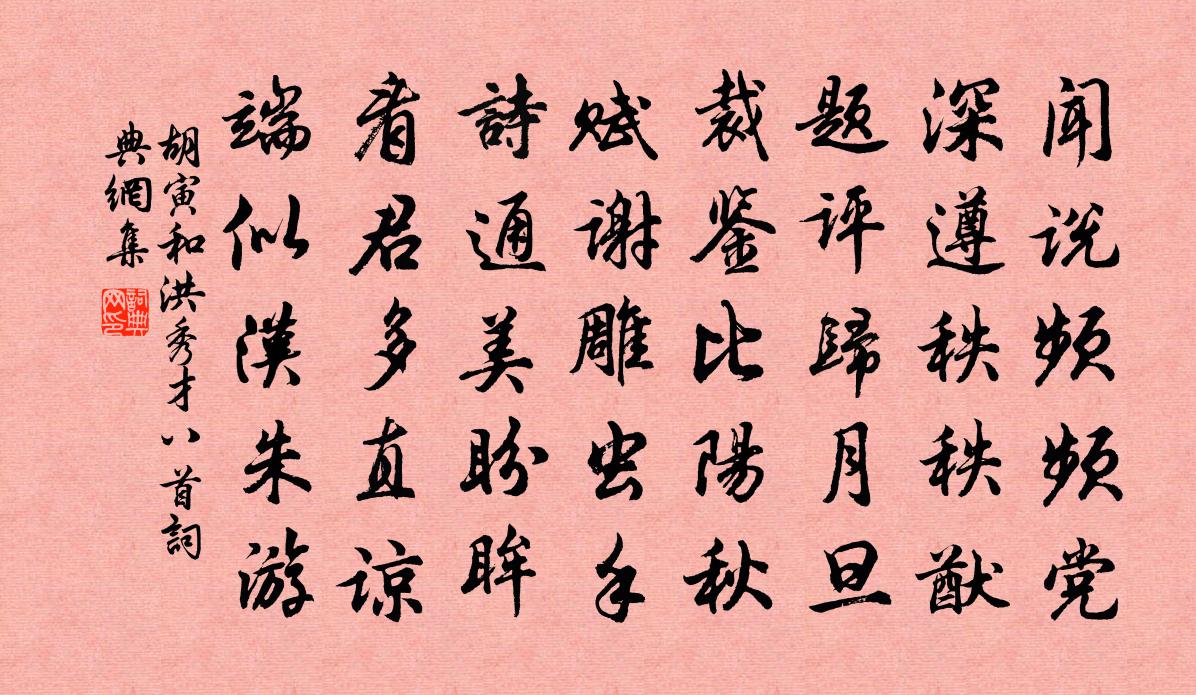 闻说频频党
深遵秩秩猷
题评歸月旦
裁鉴比陽秋
赋谢雕虫手
詩通美盼眸
看君多直谅
端似漢朱游
胡寅和洪秀才八首詞
典網集
詞典网印